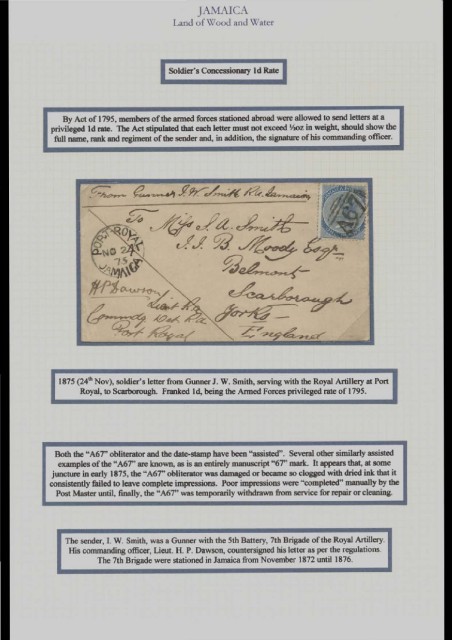 JAMAICA
Land of Wood and Water
Soldier's Concessionary 1d Rate
By Act of 1795, members of the armed forces stationed abroad were allowed to send letters at a
privileged 1d rate. The Act stipulated that each letter must not exceed ½oz in weight, should show the
full name, rank and regiment of the sender and, in addition, the signature of his commanding officer.
From Gunner J. W. Smith R.A. Jamaica
To Miss S. A. Smith
J. B. Moody Esqr
Belmont
Scarborough
Yorks
England
PORT ROYAL
NO 24
75
JAMAICA
A67
H P Dawson
Lieut R.A.
Commdg Det R.A.
Port Royal
1875 (24th Nov), soldier's letter from Gunner J. W. Smith, serving with the Royal Artillery at Port
Royal, to Scarborough. Franked 1d, being the Armed Forces privileged rate of 1795.
Both the "A67" obliterator and the date-stamp have been "assisted". Several other similarly assisted
examples of the "A67" are known, as is an entirely manuscript "67" mark. It appears that, at some
juncture in early 1875, the "A67" obliterator was damaged or became so clogged with dried ink that it
consistently failed to leave complete impressions. Poor impressions were "completed" manually by the
Post Master until, finally, the "A67" was temporarily withdrawn from service for repair or cleaning.
The sender, I. W. Smith, was a Gunner with the 5th Battery, 7th Brigade of the Royal Artillery.
His commanding officer, Lieut. H. P. Dawson, countersigned his letter as per the regulations.
The 7th Brigade were stationed in Jamaica from November 1872 until 1876.